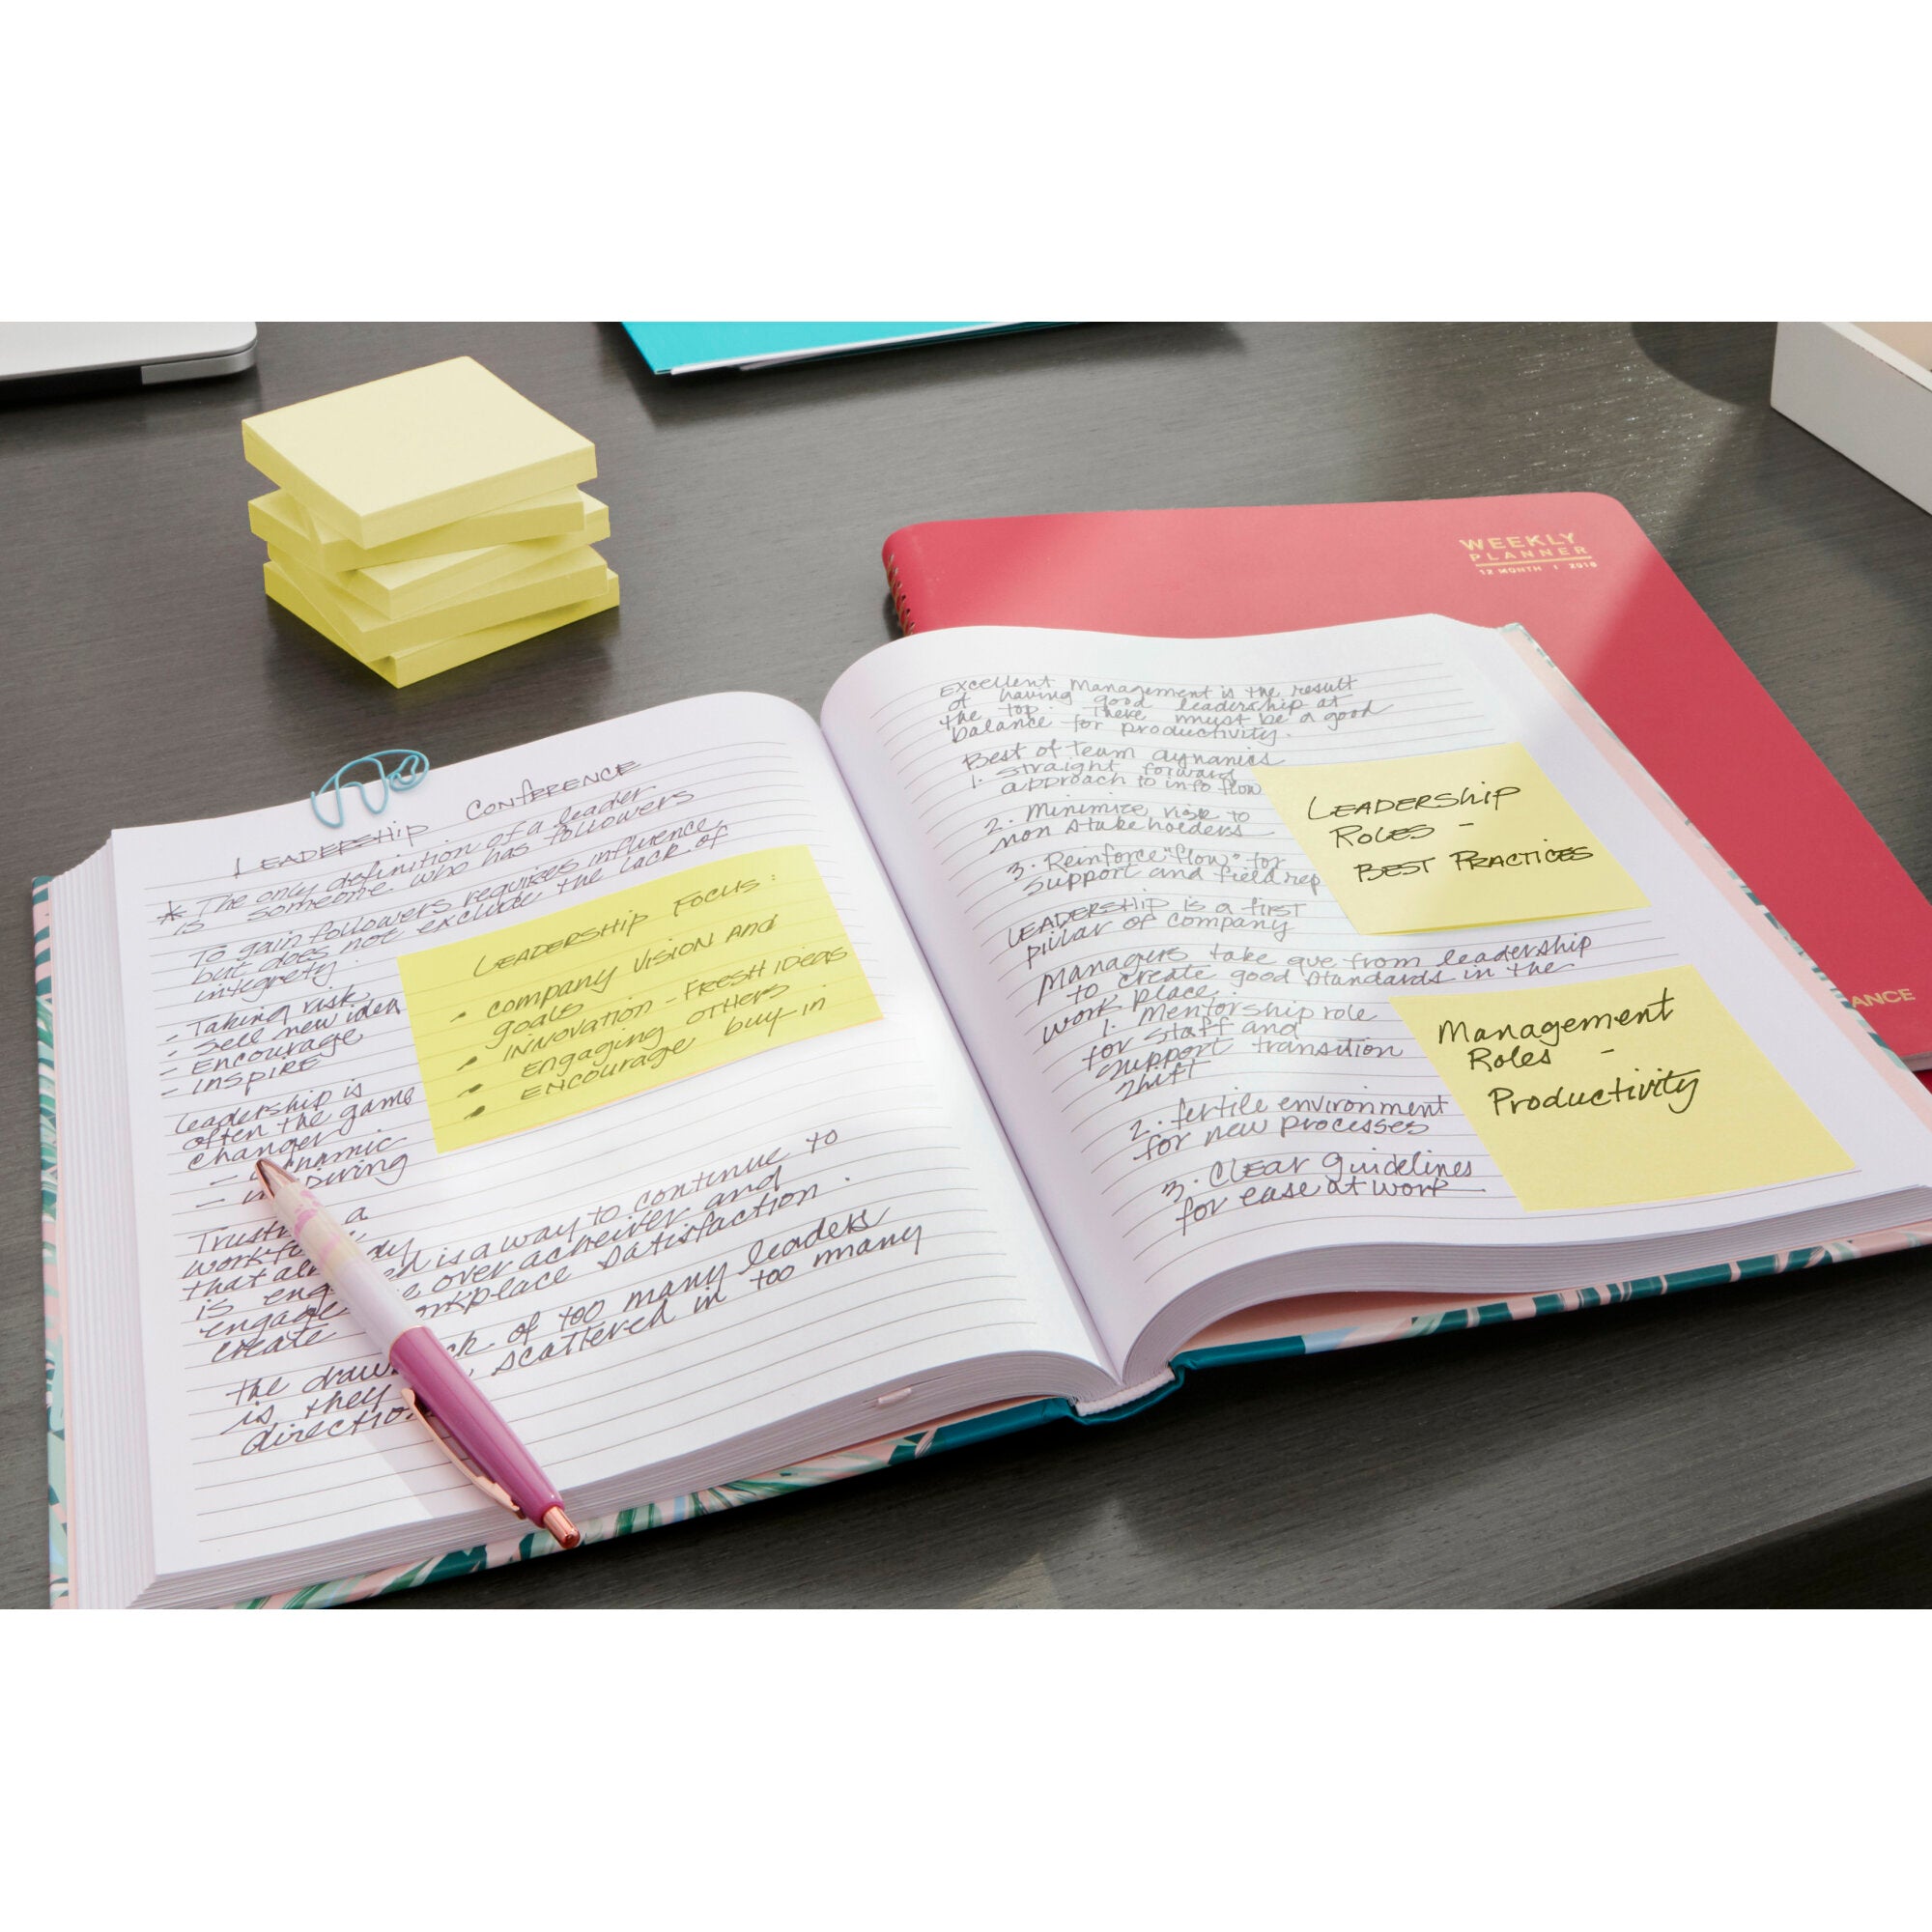 WEEKLY
PLANNER
12 MONTH | 2018
ANCE
LEADERSHIP CONFERENCE
* The only definition of a leader
is someone who has followers
To gain followers requires influence
but does not exclude the lack of
integrety.
- Taking risk
- Sell new idea
- Encourage
- INSPIRE
Leadership is
often the game
changer
LEADERSHIP FOCUS:
• company VISION AND
goals
• INNOVATION - FRESH IDEAS
• engaging OTHERS
• ENCOURAGE buy-in
is a way to continue to
over acheiver and
satisfaction.
create
the of too many leaders
is they scattered in too many
Excellent Management is the result
of having good leadership at
the top. There must be a good
balance for productivity.
Best of team dynanics
1. straight forward
approach to info flow
2. Minimize risk to
non stakeholders
3. Reinforce "flow" for
support and field rep
LEADERSHIP is a first
pillar of company
Managers take que from leadership
to create good standards in the
work place.
1. Mentorship role
for staff and
support transition
shift
2. fertile environment
for new processes
3. Clear Guidelines
for ease at work
LEADERSHIP
ROLES -
BEST PRACTICES
Management
Roles -
Productivity